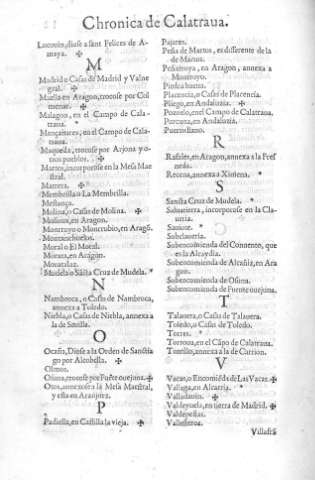 Chronica de Calatraua.
Locouin, diose a sant Felices de A-
maya. ✠
M
Madrid o Casas de Madrid y Valne
gral. ✠
Maella en Aragon, trocose por Col
menar. ✠
Malagon, en el Campo de Cala-
traua. *
Mançanares, en el Campo de Cala-
traua.
Maqueda, trocose por Arjona y o-
tros pueblos. ✠
Martos, incorporose en la Mesa Mae
stral.
✠
Membrilla o La Membrilla.
Molina, o Casas de Molina. ✠
en Aragon.
Monroyo o en Aragõ.
Moral o El Moral.
en Aragon.
Moratalaz.
Mudela o Sãcta Cruz de Mudela. *
N
Nambroca, o Casas de Nambroca,
annexa a Toledo.
Niebla, o Casas de Niebla, annexa a
la de Seuilla.
O
Ocaña, Diose a la Orden de Sanctia
go por Alcobella. ✠
Olmos.
trocose por Fuēte ouejuna. ✠
Otos, annexose a la Mesa Maestral,
y esta en Aranjuez.
P
Padilla, en Castilla la vieja. ✠
Pajares.
Peña de Martos, es differente de la
de Martos.
en Aragon, annexa a
Monroyo.
Piedra buena.
Placencia, o Casas de Placencia.
Pliego, en Andaluzia. ✠
Pozuelo, en el Campo de Calatraua.
Porcuna, en Andaluzia.
Puertollano.
R
Rafales, en Aragon, annexa a la Fres
neda.
Recena, annexa a Ximena. *
S
Sancta Cruz de Mudela. *
incorporose en la Cla-
ueria.
*
Subclaueria.
Subcomienda del Conuento, que
es la Alcaydia.
Subencomienda de Alcañiz, en Ara
gon.
Subencomienda de Osuna.
Subencomienda de Fuente ouejuna.
T
Talauera, o Casas de Talauera.
Toledo, o Casas de Toledo.
Torres. *
Torroua, en el Cãpo de Calatraua.
Torrillo, annexa a la de Carrion.
V
Vacas, o Encomiēda de Las Vacas. ✠
en Alcarria. *
✠
Valdeyuelo, en tierra de Madrid. ✠
Valdepeñas.
Vallesta